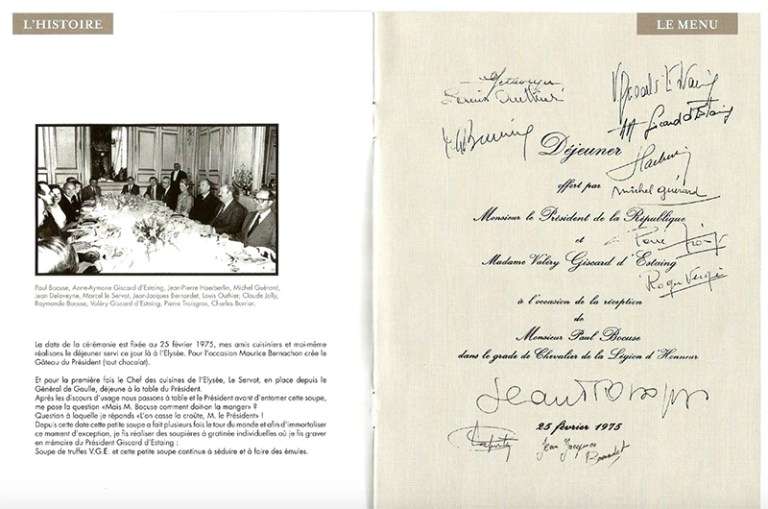 L'HISTOIRE
Paul Bocuse, Anne-Aymone Giscard d'Estaing, Jean-Pierre Haeberlin, Michel Guérard,
Jean Delaveyne, Marcel le Servot, Jean-Jacques Bernardet, Louis Outhier, Claude Jolly,
Raymonde Bocuse, Valéry Giscard d'Estaing, Pierre Troisgros, Charles Barrier.
La date de la cérémonie est fixée au 25 février 1975, mes amis cuisiniers et moi-même
réalisons le déjeuner servi ce jour là à l'Elysée. Pour l'occasion Maurice Bernachon crée le
Gâteau du Président (tout chocolat).
Et pour la première fois le Chef des cuisines de l'Elysée, Le Servot, en place depuis le
Général de Gaulle, déjeune à la table du Président.
Après les discours d'usage nous passons à table et le Président avant d'entamer cette soupe,
me pose la question «Mais M. Bocuse comment doit-on la manger» ?
Question à laquelle je réponds «L'on casse la croûte, M. le Président» !
Depuis cette date cette petite soupe a fait plusieurs fois le tour du monde et afin d'immortaliser
ce moment d'exception, je fis réaliser des soupières à gratinée individuelles où je fis graver
en mémoire du Président Giscard d'Estaing :
Soupe de truffes V.G.E. et cette petite soupe continue à séduire et à faire des émules.
LE MENU
Louis Outhier
Giscard d'Estaing
Déjeuner
offert par
Michel Guérard
Monsieur le Président de la République
et
Pierre
Madame Valéry Giscard d'Estaing
Roger Vergé
à l'occasion de la réception
de
Monsieur Paul Bocuse
dans le grade de Chevalier de la Légion d'Honneur
Jean Troisgros
25 février 1975
Jean Jacques
Bernardet